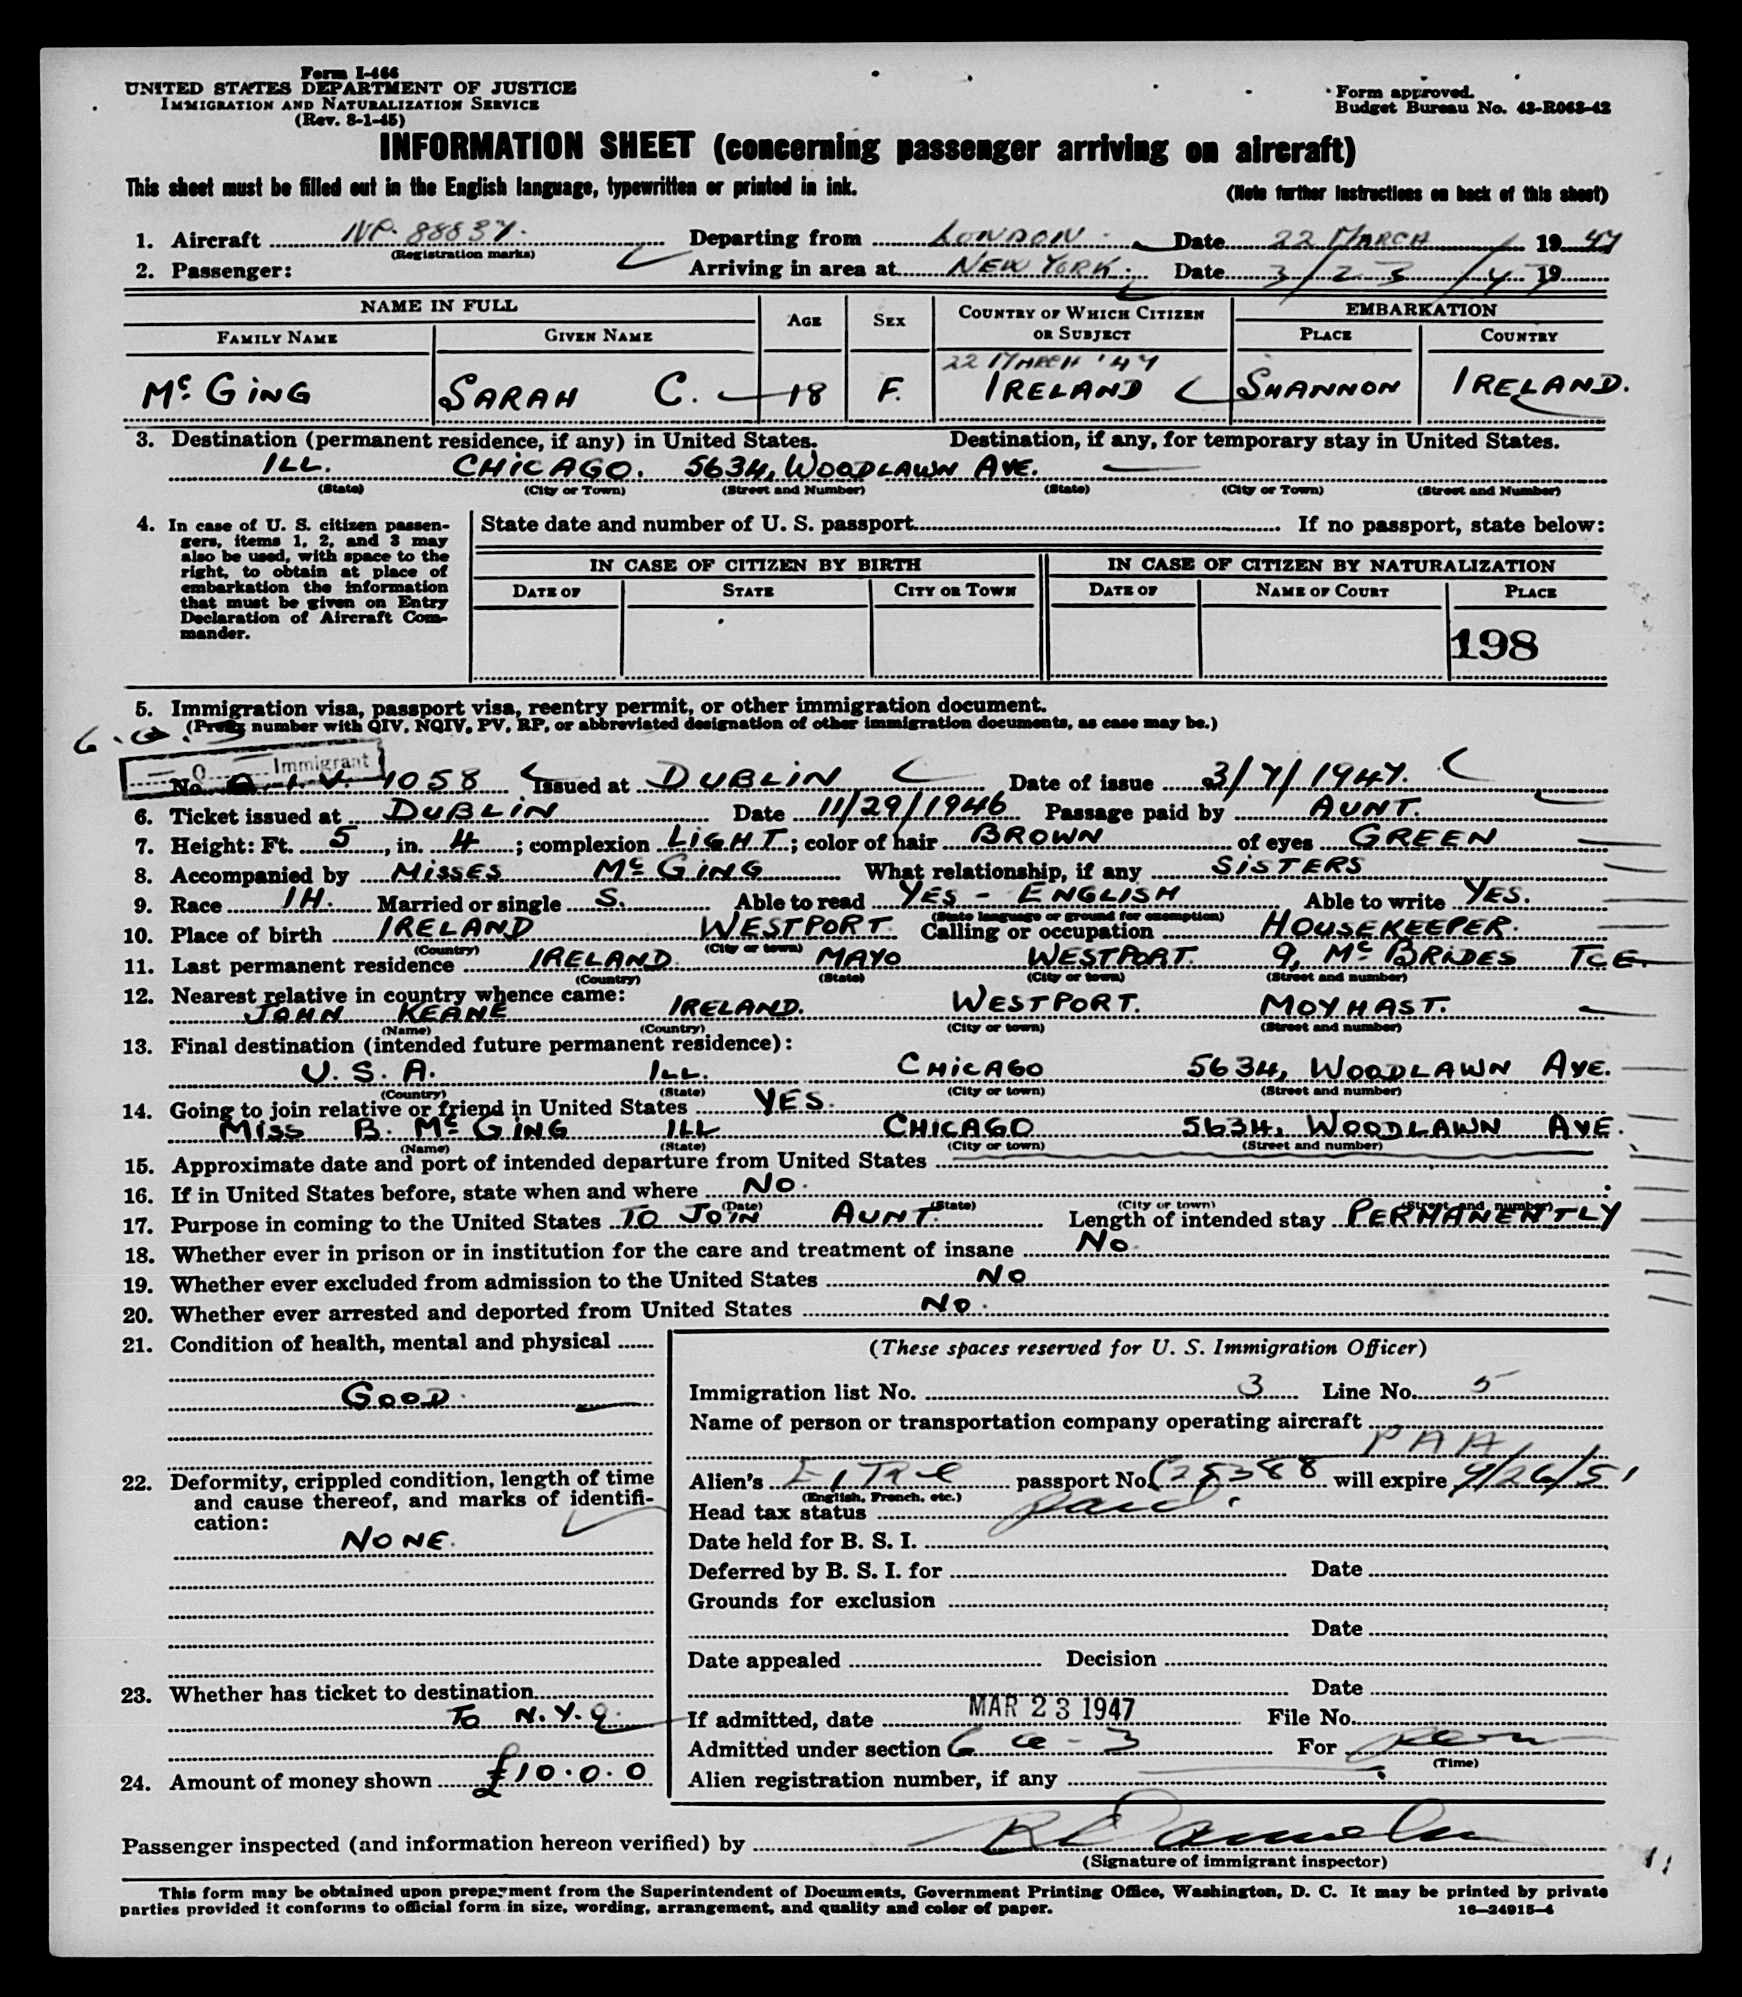 Form I-466
UNITED STATES DEPARTMENT OF JUSTICE
IMMIGRATION AND NATURALIZATION SERVICE
(Rev. 8-1-45)
Form approved.
Budget Bureau No. 43-R063-42
INFORMATION SHEET (concerning passenger arriving on aircraft)
This sheet must be filled out in the English language, typewritten or printed in ink.
(Note further instructions on back of this sheet)
1. Aircraft NP. 88837. Departing from LONDON. Date 22 MARCH 1947
(Registration marks)
2. Passenger: Arriving in area at NEW YORK. Date 3/23/47 19
NAME IN FULL AGE SEX COUNTRY OF WHICH CITIZEN OR SUBJECT EMBARKATION
FAMILY NAME GIVEN NAME PLACE COUNTRY
22 MARCH '47
McGING SARAH C. 18 F. IRELAND SHANNON IRELAND.
3. Destination (permanent residence, if any) in United States. Destination, if any, for temporary stay in United States.
ILL. CHICAGO. 5634, WOODLAWN AVE.
(State) (City or Town) (Street and Number) (State) (City or Town) (Street and Number)
4. In case of U. S. citizen passen-
gers, items 1, 2, and 3 may
also be used, with space to the
right, to obtain at place of
embarkation the information
that must be given on Entry
Declaration of Aircraft Com-
mander.
State date and number of U. S. passport If no passport, state below:
IN CASE OF CITIZEN BY BIRTH IN CASE OF CITIZEN BY NATURALIZATION
DATE OF STATE CITY OR TOWN DATE OF NAME OF COURT PLACE
198
5. Immigration visa, passport visa, reentry permit, or other immigration document.
(Prefix number with QIV, NQIV, PV, RP, or abbreviated designation of other immigration documents, as case may be.)
Immigrant
No. Q.I.V. 1058 Issued at DUBLIN Date of issue 3/7/1947.
6. Ticket issued at DUBLIN Date 11/29/1946 Passage paid by AUNT.
7. Height: Ft. 5, in. 4; complexion LIGHT; color of hair BROWN of eyes GREEN
8. Accompanied by MISSES McGING What relationship, if any SISTERS
9. Race IH. Married or single S. Able to read YES - ENGLISH Able to write YES.
(State language or ground for exemption)
10. Place of birth IRELAND WESTPORT. Calling or occupation HOUSEKEEPER.
(Country) (City or town)
11. Last permanent residence IRELAND. MAYO WESTPORT. 9, McBRIDES TCE.
(Country) (State) (City or town) (Street and number)
12. Nearest relative in country whence came:
JOHN KEANE IRELAND. WESTPORT. MOYHAST.
(Name) (Country) (City or town) (Street and number)
13. Final destination (intended future permanent residence):
U.S.A. ILL. CHICAGO 5634, WOODLAWN AVE.
(Country) (State) (City or town) (Street and number)
14. Going to join relative or friend in United States YES.
MISS B. McGING ILL CHICAGO 5634, WOODLAWN AVE.
(Name) (State) (City or town) (Street and number)
15. Approximate date and port of intended departure from United States
16. If in United States before, state when and where NO.
(Date) (State) (City or town) (Street and number)
17. Purpose in coming to the United States TO JOIN AUNT. Length of intended stay PERMANENTLY
18. Whether ever in prison or in institution for the care and treatment of insane NO.
19. Whether ever excluded from admission to the United States NO
20. Whether ever arrested and deported from United States NO.
21. Condition of health, mental and physical
GOOD.
22. Deformity, crippled condition, length of time
and cause thereof, and marks of identifi-
cation:
NONE.
23. Whether has ticket to destination
TO N.Y.C.
24. Amount of money shown £10.0.0
(These spaces reserved for U. S. Immigration Officer)
Immigration list No. 3 Line No. 5
Name of person or transportation company operating aircraft
PAA
Alien's passport No. 25388 will expire
(English, French, etc.)
Head tax status paid.
Date held for B. S. I.
Deferred by B. S. I. for Date
Grounds for exclusion
Date
Date appealed Decision
Date
If admitted, date MAR 23 1947 File No.
Admitted under section 6 a - 3 For perm
(Time)
Alien registration number, if any
Passenger inspected (and information hereon verified) by
(Signature of immigrant inspector)
This form may be obtained upon prepayment from the Superintendent of Documents, Government Printing Office, Washington, D. C. It may be printed by private
parties provided it conforms to official form in size, wording, arrangement, and quality and color of paper.
16—24915-4